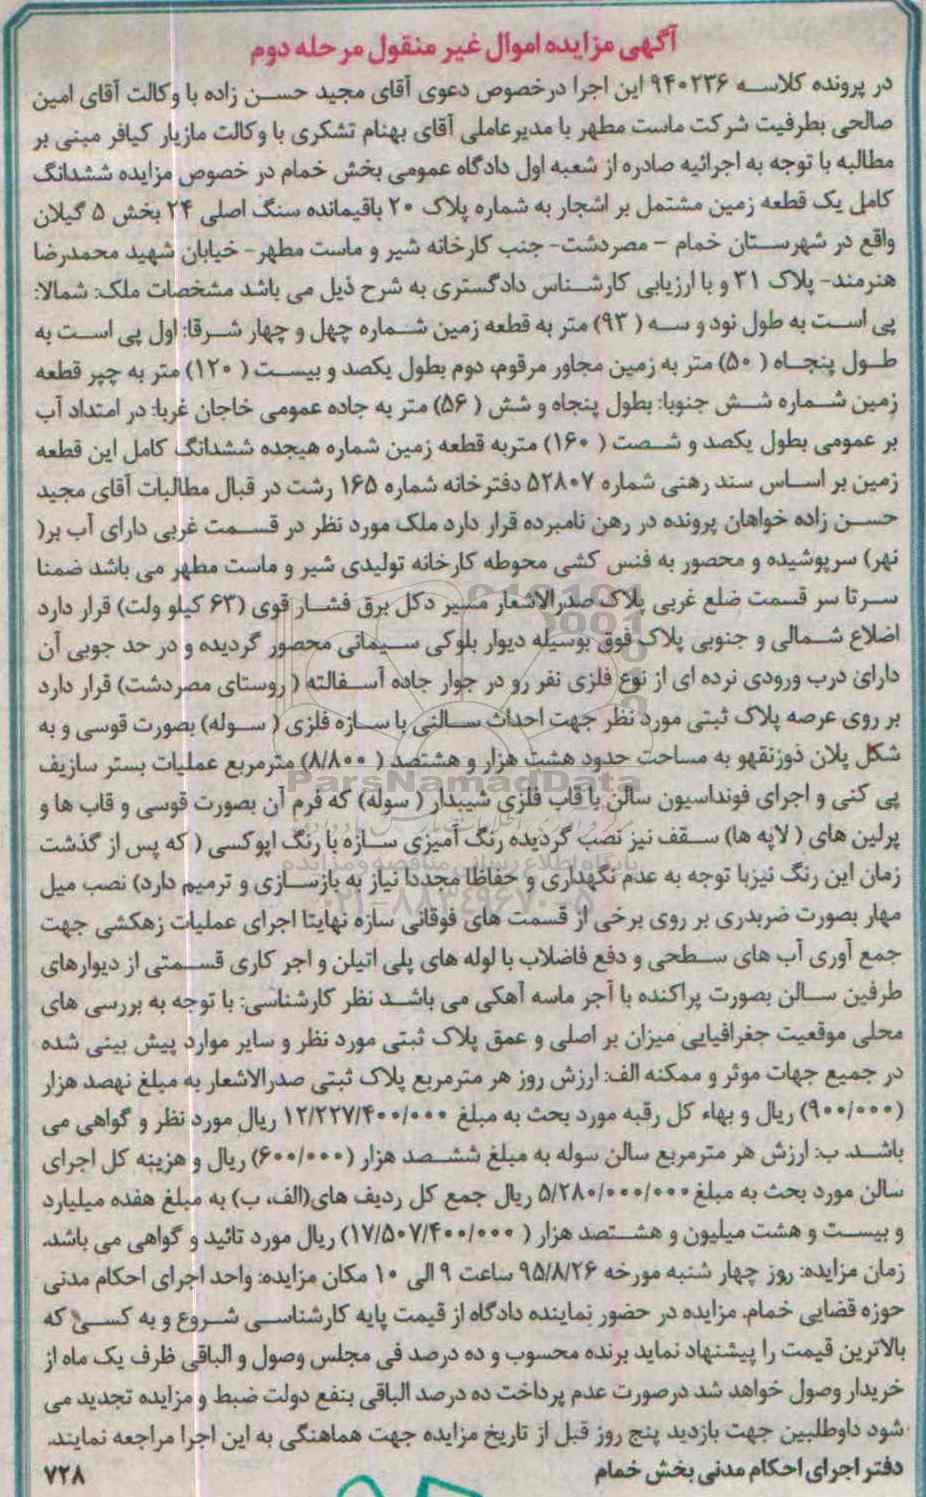 آگهی مزایده اموال غیر منقول مرحله دوم
در پرونده کلاسه ۹۴۰۲۳۶ این اجرا درخصوص دعوی آقای مجید حسن زاده با وکالت آقای امین
صالحی بطرفیت شرکت ماست مطهر با مدیرعاملی آقای بهنام تشکری با وکالت مازیار کیافر مبنی بر
مطالبه با توجه به اجرائیه صادره از شعبه اول دادگاه عمومی بخش خمام در خصوص مزایده ششدانگ
کامل یک قطعه زمین مشتمل بر اشجار به شماره پلاک ۲۰ باقیمانده سنگ اصلی ۲۴ بخش ۵ گیلان
واقع در شهرستان خمام - مصردشت- جنب کارخانه شیر و ماست مطهر- خیابان شهید محمدرضا
هنرمند- پلاک ۳۱ و با ارزیابی کارشناس دادگستری به شرح ذیل می باشد مشخصات ملک: شمالا:
پی است به طول نود و سه ( ۹۳) متر به قطعه زمین شماره چهل و چهار شرقا: اول پی است به
طول پنجاه ( ۵۰) متر به زمین مجاور مرقوم، دوم بطول یکصد و بیست ( ۱۲۰) متر به چپر قطعه
زمین شماره شش جنوبا: بطول پنجاه و شش ( ۵۶) متر به جاده عمومی خاجان غربا: در امتداد آب
بر عمومی بطول یکصد و شصت ( ۱۶۰) متربه قطعه زمین شماره هیجده ششدانگ کامل این قطعه
زمین بر اساس سند رهنی شماره ۵۲۸۰۷ دفترخانه شماره ۱۶۵ رشت در قبال مطالبات آقای مجید
حسن زاده خواهان پرونده در رهن نامبرده قرار دارد ملک مورد نظر در قسمت غربی دارای آب بر(
نهر) سرپوشیده و محصور به فنس کشی محوطه کارخانه تولیدی شیر و ماست مطهر می باشد ضمنا
سرتا سر قسمت ضلع غربی پلاک صدرالاشعار مسیر دکل برق فشار قوی (۶۳ کیلو ولت) قرار دارد
اضلاع شمالی و جنوبی پلاک فوق بوسیله دیوار بلوکی سیمانی محصور گردیده و در حد جوبی آن
دارای درب ورودی نرده ای از نوع فلزی نفر رو در جوار جاده آسفالته ( روستای مصردشت) قرار دارد
بر روی عرصه پلاک ثبتی مورد نظر جهت احداث سالنی با سازه فلزی ( سوله) بصورت قوسی و به
شکل پلان ذوزنقهو به مساحت حدود هشت هزار و هشتصد ( ۸/۸۰۰) مترمربع عملیات بستر سازیف
پی کنی و اجرای فونداسیون سالن با قاب فلزی شیبدار ( سوله) که فرم آن بصورت قوسی و قاب ها و
پرلین های ( لاپه ها) سقف نیز نصب گردیده رنگ آمیزی سازه با رنگ اپوکسی ( که پس از گذشت
زمان این رنگ نیزبا توجه به عدم نگهداری و حفاظا مجددا نیاز به بازسازی و ترمیم دارد) نصب میل
مهار بصورت ضربدری بر روی برخی از قسمت های فوقانی سازه نهایتا اجرای عملیات زهکشی جهت
جمع آوری آب های سطحی و دفع فاضلاب با لوله های پلی اتیلن و اجر کاری قسمتی از دیوارهای
طرفین سالن بصورت پراکنده با آجر ماسه آهکی می باشد نظر کارشناسی: با توجه به بررسی های
محلی موقعیت جغرافیایی میزان بر اصلی و عمق پلاک ثبتی مورد نظر و سایر موارد پیش بینی شده
در جمیع جهات موثر و ممکنه الف: ارزش روز هر مترمربع پلاک ثبتی صدرالاشعار به مبلغ نهصد هزار
(۹۰۰/۰۰۰) ریال و بهاء کل رقبه مورد بحث به مبلغ ۱۲/۲۲۷/۴۰۰/۰۰۰ ریال مورد نظر و گواهی می
باشد. ب: ارزش هر مترمربع سالن سوله به مبلغ ششصد هزار (۶۰۰/۰۰۰) ریال و هزینه کل اجرای
سالن مورد بحث به مبلغ ۵/۲۸۰/۰۰۰/۰۰۰ ریال جمع کل ردیف های(الف، ب) به مبلغ هفده میلیارد
و بیست و هشت میلیون و هشتصد هزار ( ۱۷/۵۰۷/۴۰۰/۰۰۰) ریال مورد تائید و گواهی می باشد.
زمان مزایده: روز چهار شنبه مورخه ۹۵/۸/۲۶ ساعت ۹ الی ۱۰ مکان مزایده: واحد اجرای احکام مدنی
حوزه قضایی خمام. مزایده در حضور نماینده دادگاه از قیمت پایه کارشناسی شروع و به کسی که
بالاترین قیمت را پیشنهاد نماید برنده محسوب و ده درصد فی مجلس وصول و الباقی ظرف یک ماه از
خریدار وصول خواهد شد درصورت عدم پرداخت ده درصد الباقی بنفع دولت ضبط و مزایده تجدید می
شود داوطلبین جهت بازدید پنج روز قبل از تاریخ مزایده جهت هماهنگی به این اجرا مراجعه نمایند.
دفتر اجرای احکام مدنی بخش خمام
۷۲۸
ParsNamadData
پایگاه اطلاع رسانی مناقصه و مزایده